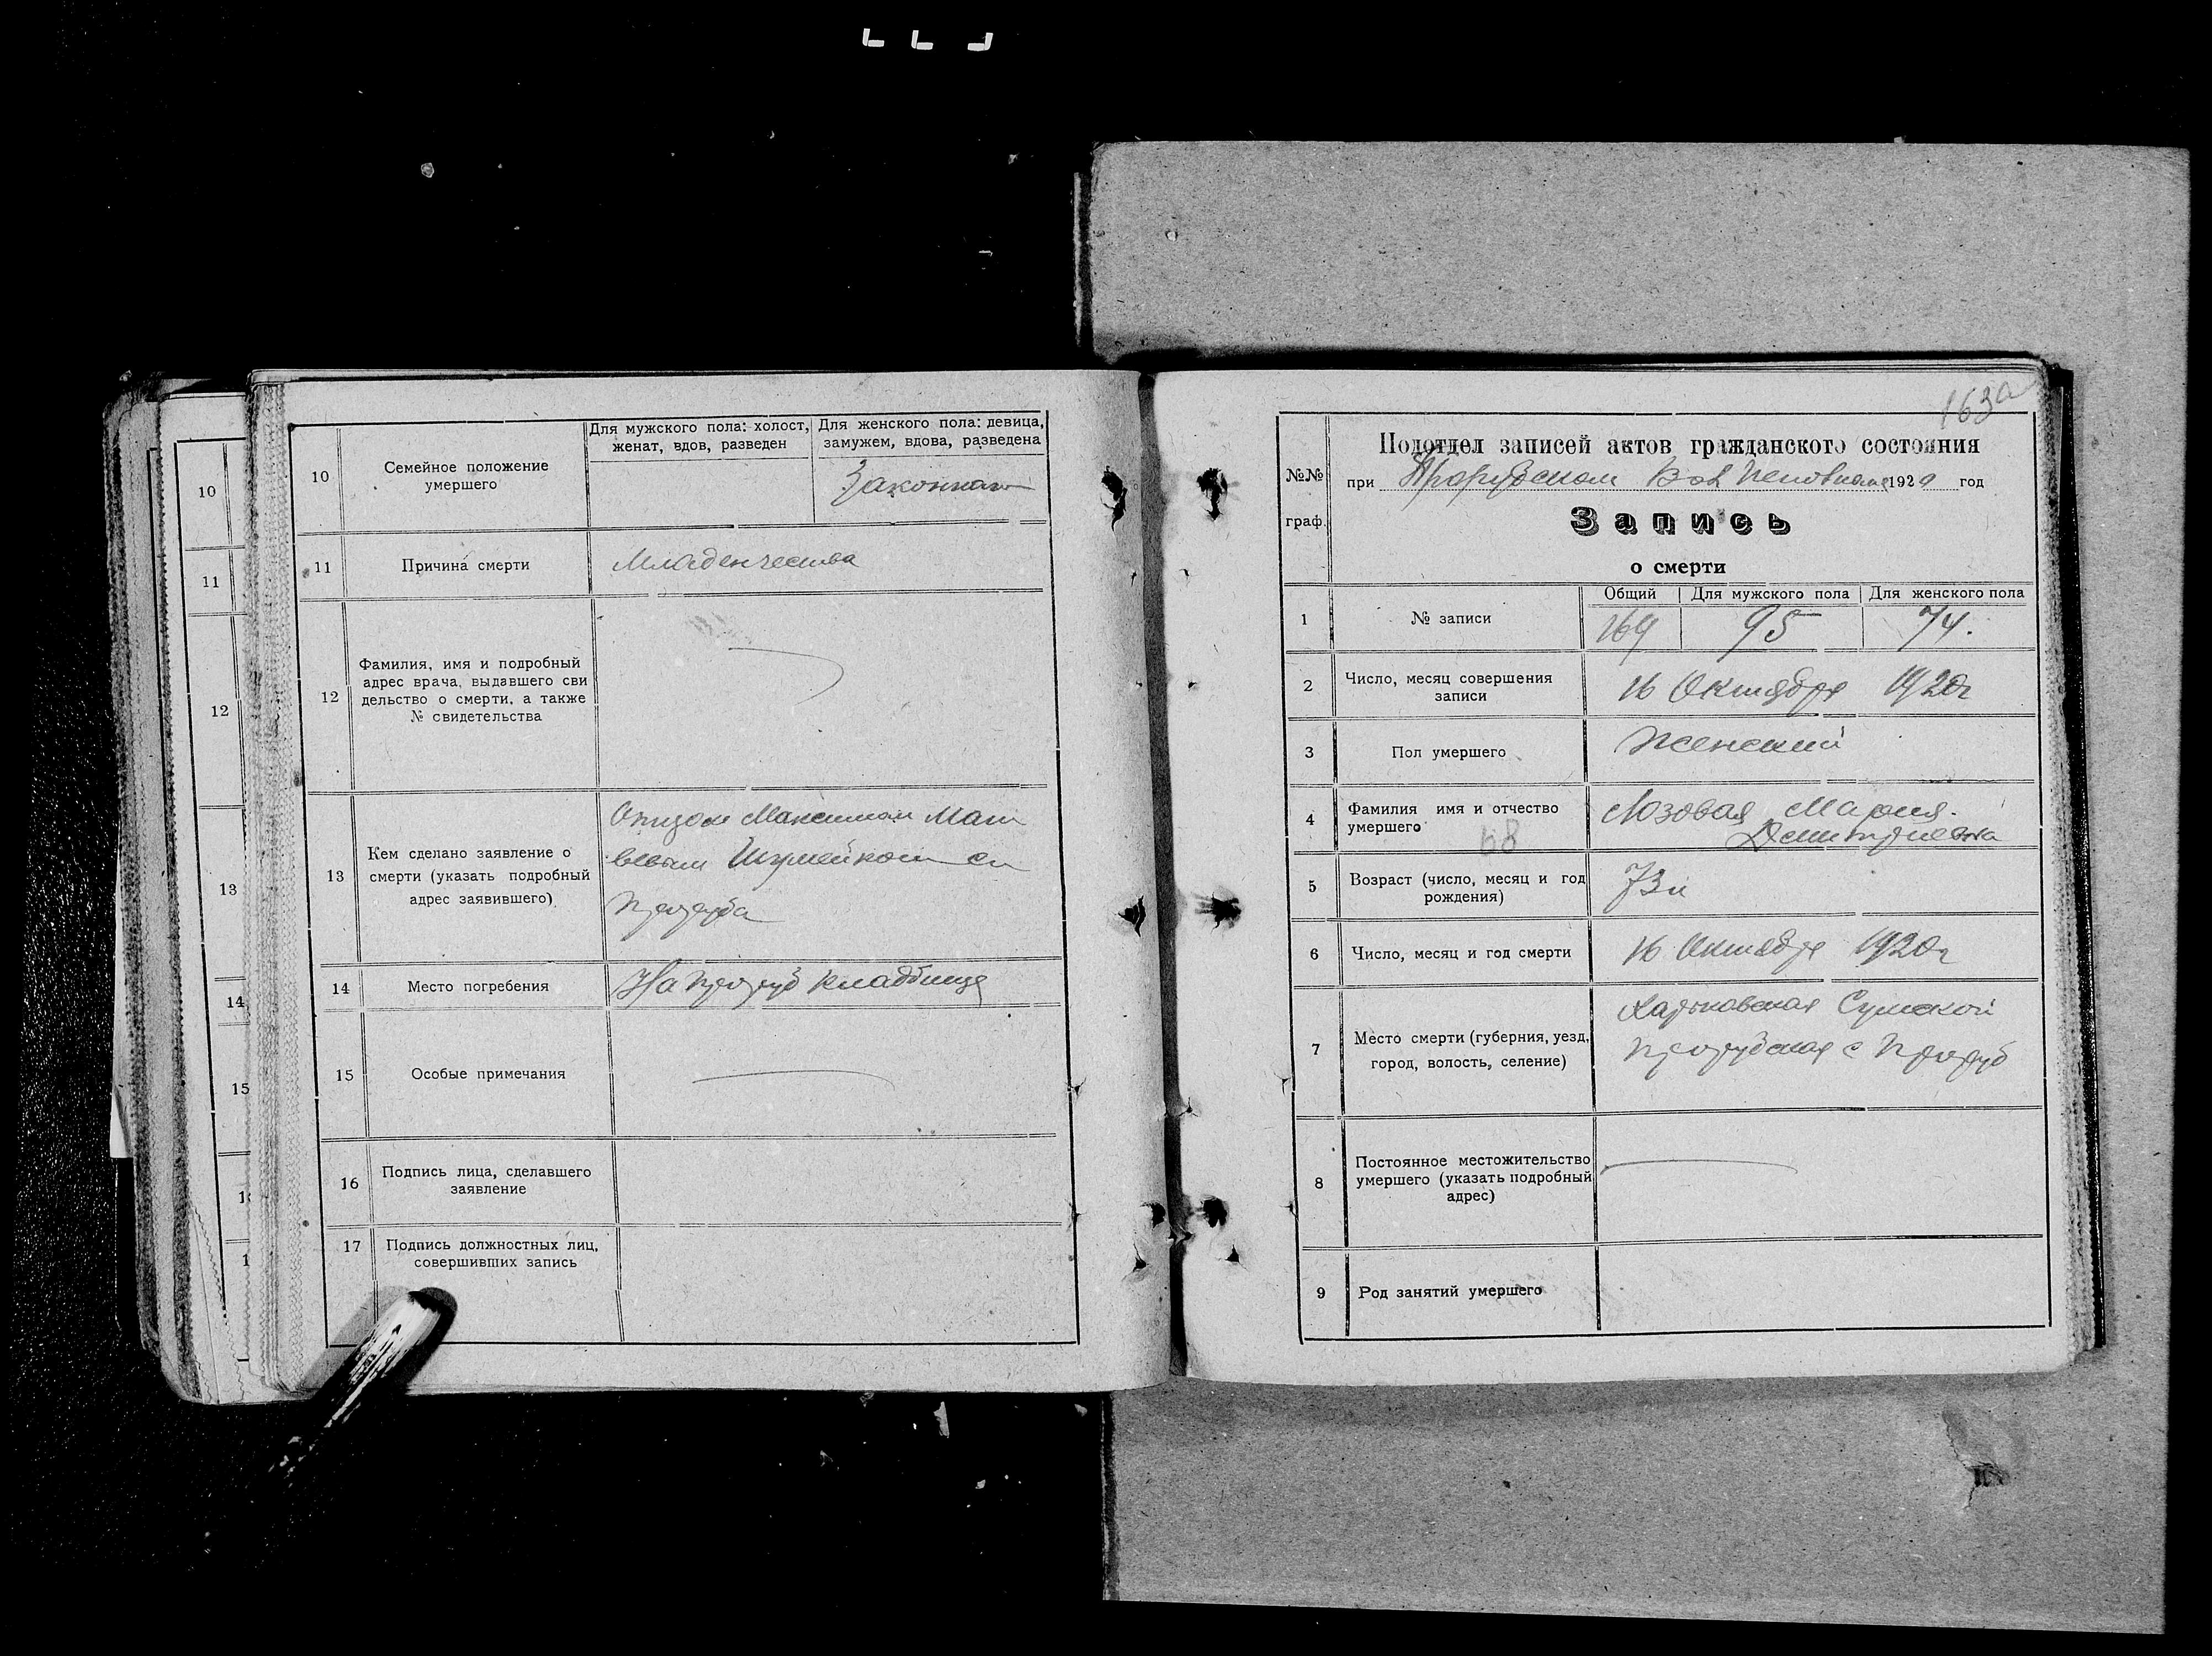 10
11
12
13
14
15
10
Семейное положение
умершего
Для мужского пола: холост,
женат, вдов, разведен
Для женского пола: девица,
замужем, вдова, разведена
Законная
11
Причина смерти
Младенчества
12
Фамилия, имя и подробный
адрес врача, выдавшего сви
дельство о смерти, а также
№ свидетельства
13
Кем сделано заявление о
смерти (указать подробный
адрес заявившего)
Отцом Максимом Мат
14
Место погребения
На Проруб кладбище
15
Особые примечания
16
Подпись лица, сделавшего
заявление
17
Подпись должностных лиц,
совершивших запись
163а
№№
граф.
Подотдел записей актов гражданского состояния
при Прорубском Вол 1920 год
Запись
о смерти
1
№ записи
Общий
Для мужского пола
Для женского пола
169
95
74.
2
Число, месяц совершения
записи
16 Октября 1920г
3
Пол умершего
Женский
4
Фамилия имя и отчество
умершего
68
Лозовая Мария
Дмитриевна
5
Возраст (число, месяц и год
рождения)
73
6
Число, месяц и год смерти
16 Октября 1920г
7
Место смерти (губерния, уезд,
город, волость, селение)
Харьковская Сумской
Прорубская с Проруб
8
Постоянное местожительство
умершего (указать подробный
адрес)
9
Род занятий умершего